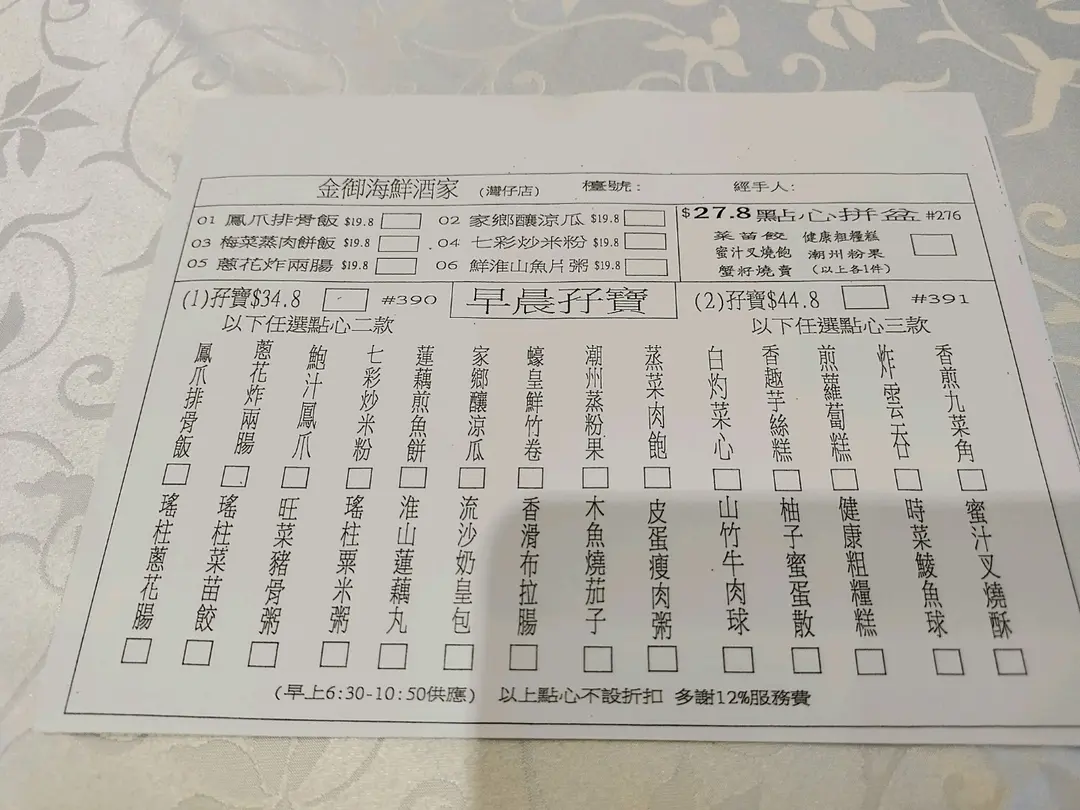 金御海鮮酒家 (灣仔店) 檯號： 經手人：
01 鳳爪排骨飯 $19.8 02 家鄉釀涼瓜 $19.8
03 梅菜蒸肉餅飯 $19.8 04 七彩炒米粉 $19.8
05 蔥花炸兩腸 $19.8 06 鮮淮山魚片粥 $19.8
$27.8 點心拼盆 #276
菜苗餃 健康粗糧糕
蜜汁叉燒飽 潮州粉果
蟹籽燒賣 (以上各1件)
(1)孖寶$34.8 #390
以下任選點心二款
早晨孖寶
(2)孖寶$44.8 #391
以下任選點心三款
鳳爪排骨飯
蔥花炸兩腸
鮑汁鳳爪
七彩炒米粉
蓮藕煎魚餅
家鄉釀涼瓜
蠔皇鮮竹卷
潮州蒸粉果
蒸菜肉飽
白灼菜心
香趣芋絲糕
煎蘿蔔糕
炸雲吞
香煎九菜角
瑤柱蔥花腸
瑤柱菜苗餃
旺菜豬骨粥
瑤柱粟米粥
淮山蓮藕丸
流沙奶皇包
香滑布拉腸
木魚燒茄子
皮蛋瘦肉粥
山竹牛肉球
柚子蜜蛋散
健康粗糧糕
時菜鯪魚球
蜜汁叉燒酥
(早上6:30-10:50供應) 以上點心不設折扣 多謝12%服務費